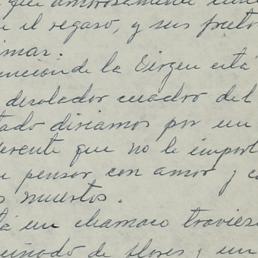 que amorosamente
el regazo, y sus
imar:
de la Virgen está
desolador cuadro del
diríamos por un
erente que no le import
pensar con amor y c
muertos.
un chamaco travies
de flores y un